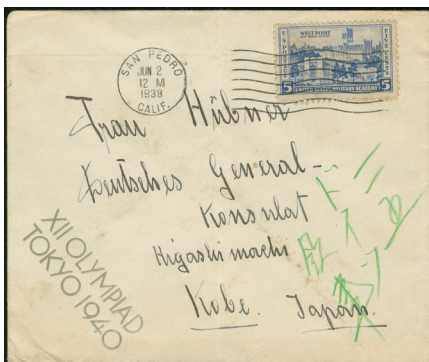 SAN PEDRO
JUN 2
12 M
1938
CALIF.
WEST POINT
U.S. PO
FIVE CENTS
5 UNITED STATES MILITARY ACADEMY 5
Frau Hübner
Deutsches General-
Konsulat
Higashimachi
Kobe. Japan.
XII OLYMPIAD
TOKYO 1940